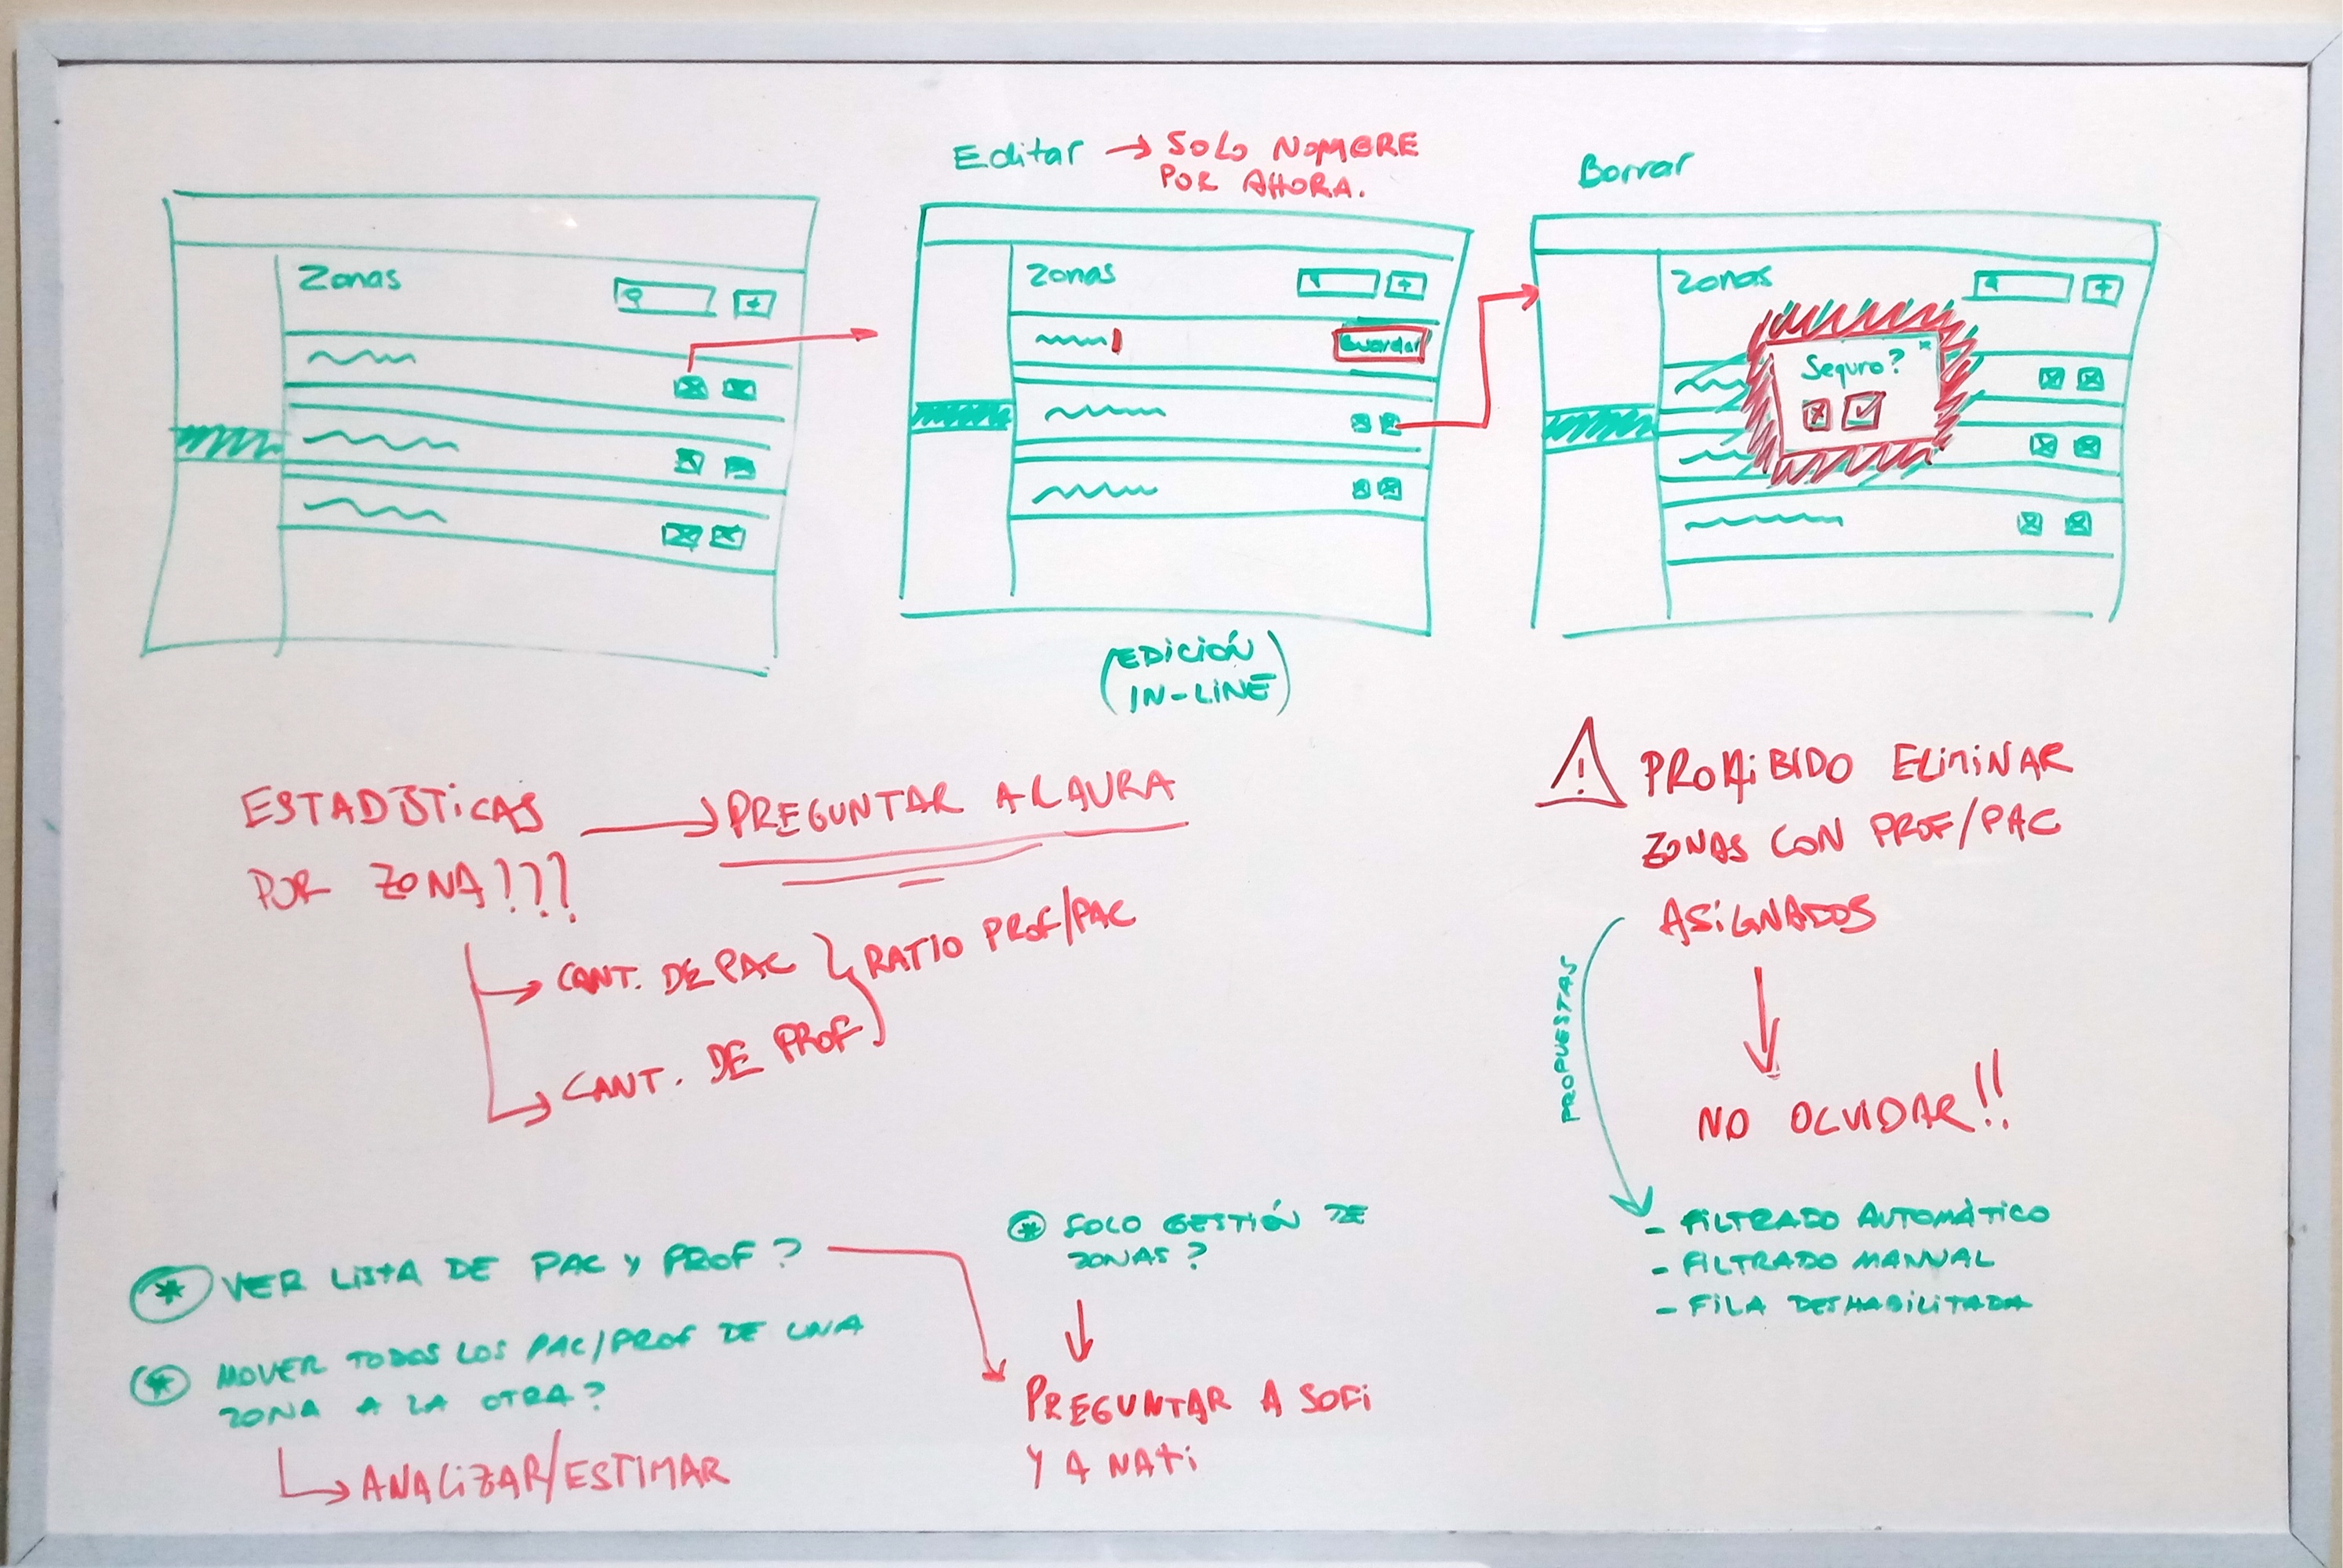 Editar → SOLO NOMBRE
POR AHORA.
Borrar
Zonas
+
Zonas
+
Guardar
Zonas
+
Seguro?
x
(EDICIÓN
IN-LINE)
ESTADÍSTICAS
POR ZONA???
PREGUNTAR A LAURA
CANT. DE PAC
CANT. DE PROF
RATIO PROF/PAC
! PROHIBIDO ELIMINAR
ZONAS CON PROF/PAC
ASIGNADOS
NO OLVIDAR!!
PROPUESTAS
- FILTRADO AUTOMÁTICO
- FILTRADO MANUAL
- FILA DESHABILITADA
* VER LISTA DE PAC Y PROF?
* MOVER TODOS LOS PAC/PROF DE UNA
ZONA A LA OTRA?
ANALIZAR/ESTIMAR
* SOLO GESTIÓN DE
ZONAS?
PREGUNTAR A SOFI
Y A NATI